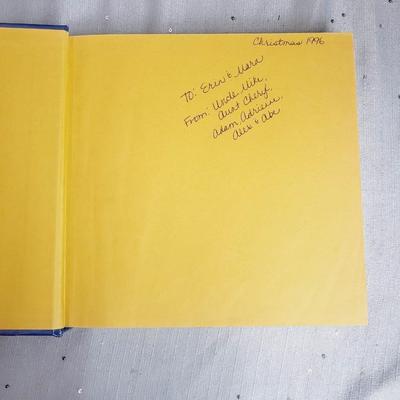 Christmas 1996
To: Erin & Mara
From: Uncle Mike,
Aunt Cheryl,
Adam, Adriene,
Alex & Abe